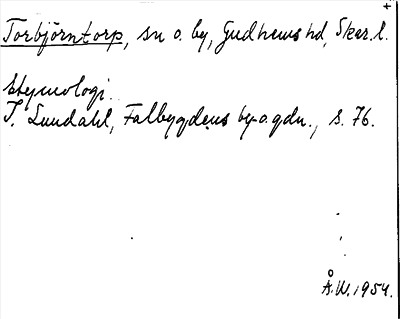 Torbjörntorp, sn o. by, Gudhems hd, Skar. l.
Etymologi.
I. Lundahl, Falbygdens by- o. gdn., s. 76.
Å.W. 1954.